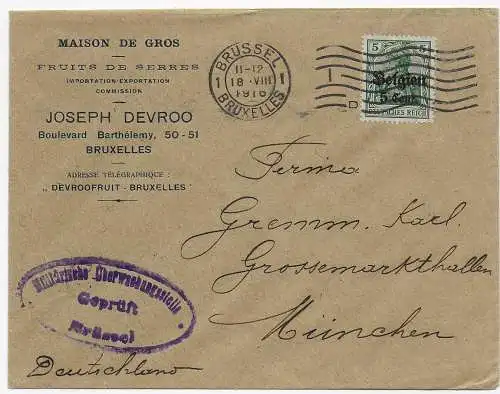 MAISON DE GROS
FRUITS DE SERRES
IMPORTATION-EXPORTATION
COMMISSION
JOSEPH DEVROO
Boulevard Barthélemy, 50-51
BRUXELLES
ADRESSE TÉLÉGRAPHIQUE :
„ DEVROOFRUIT - BRUXELLES "
BRÜSSEL
11-12
1 18 · VIII 1
1916
BRUXELLES
5
Belgien
5 Cent.
DEUTSCHES REICH
Firma
Gremm. Karl.
Grossemarkthallen
München
Militärische Überwachungsstelle
Geprüft
Brüssel
Deutschland